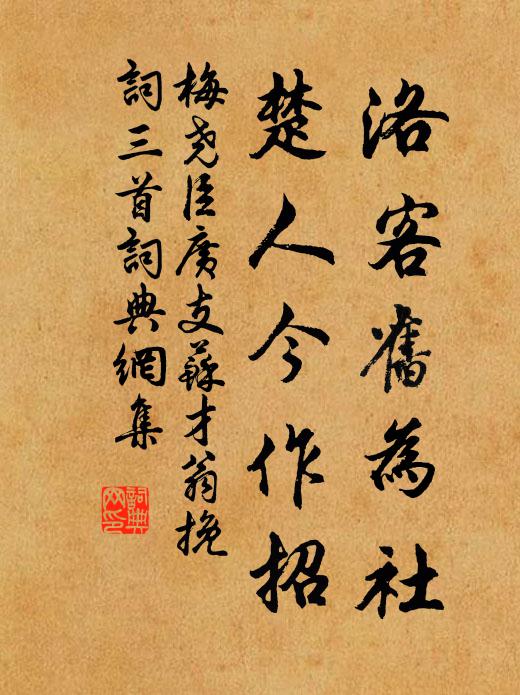 洛客舊為社
楚人今作招
梅堯臣度支蘇才翁挽
詞三首詞典網集
詞典网印